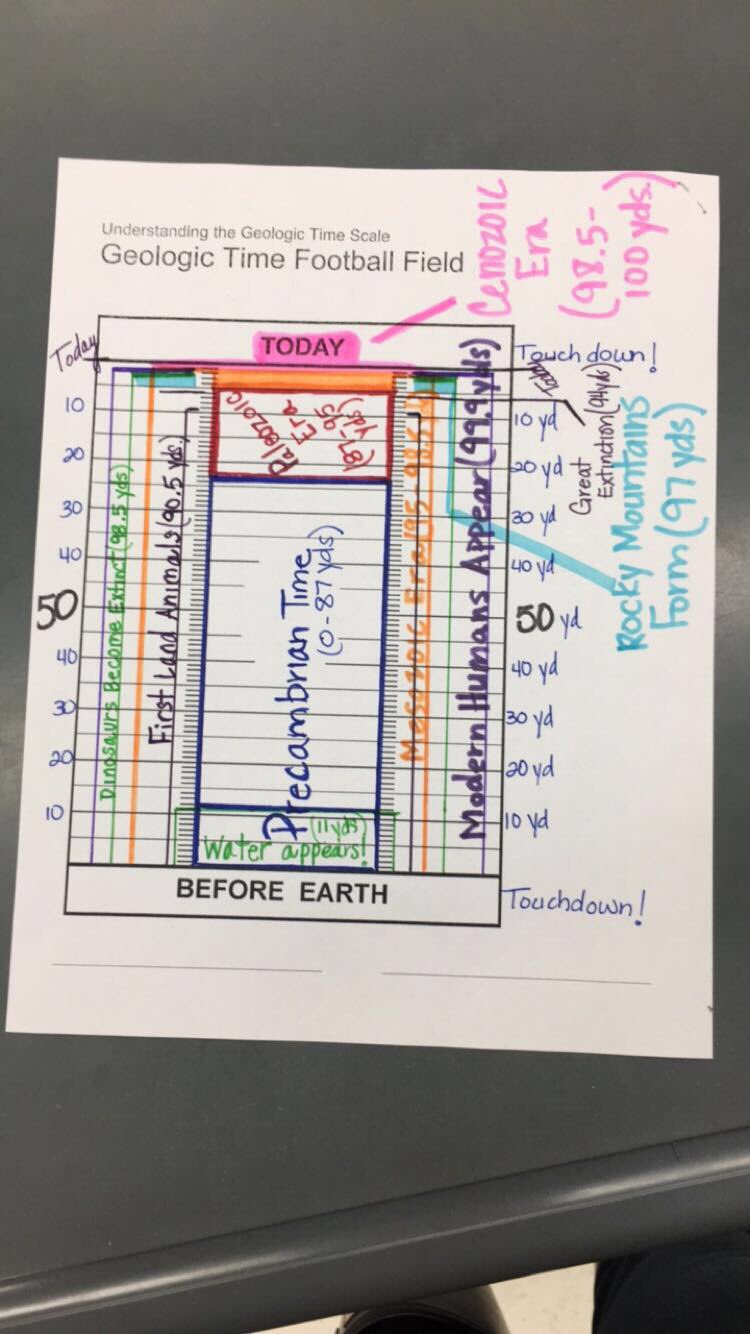 Understanding the Geologic Time Scale
Geologic Time Football Field
Cenozoic
Era
(98.5-
100 yds.)
TODAY
Today
Touchdown!
10
20
30
40
50
40
30
20
10
Dinosaurs Become Extinct (98.5 yds)
First Land Animals (90.5 yds)
Paleozoic
Era
(87-95
yds)
Precambrian Time
(0-87 yds)
(11 yds)
Water appears!
Mesozoic Era (95-98.5
Modern Humans Appear (99.9 yds)
10 yd
20 yd
30 yd
40 yd
50 yd
40 yd
30 yd
20 yd
10 yd
Great
Extinction (94 yds)
Rocky Mountains
Form (97 yds)
BEFORE EARTH
Touchdown!